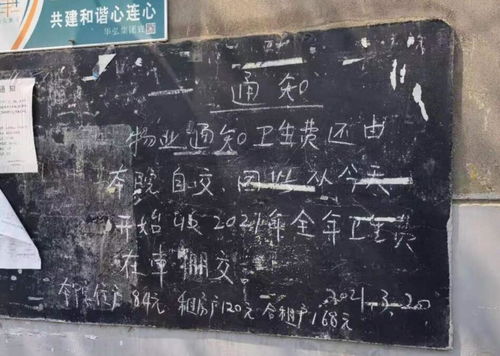 共建和谐心连心
华弘集团宣
通知
通知
物业通知卫生费还由
本院自交,因此从今天
开始收2021年全年卫生费
在车棚交。
2021.3.20
本院住户84元 租房户120元 合租户168元